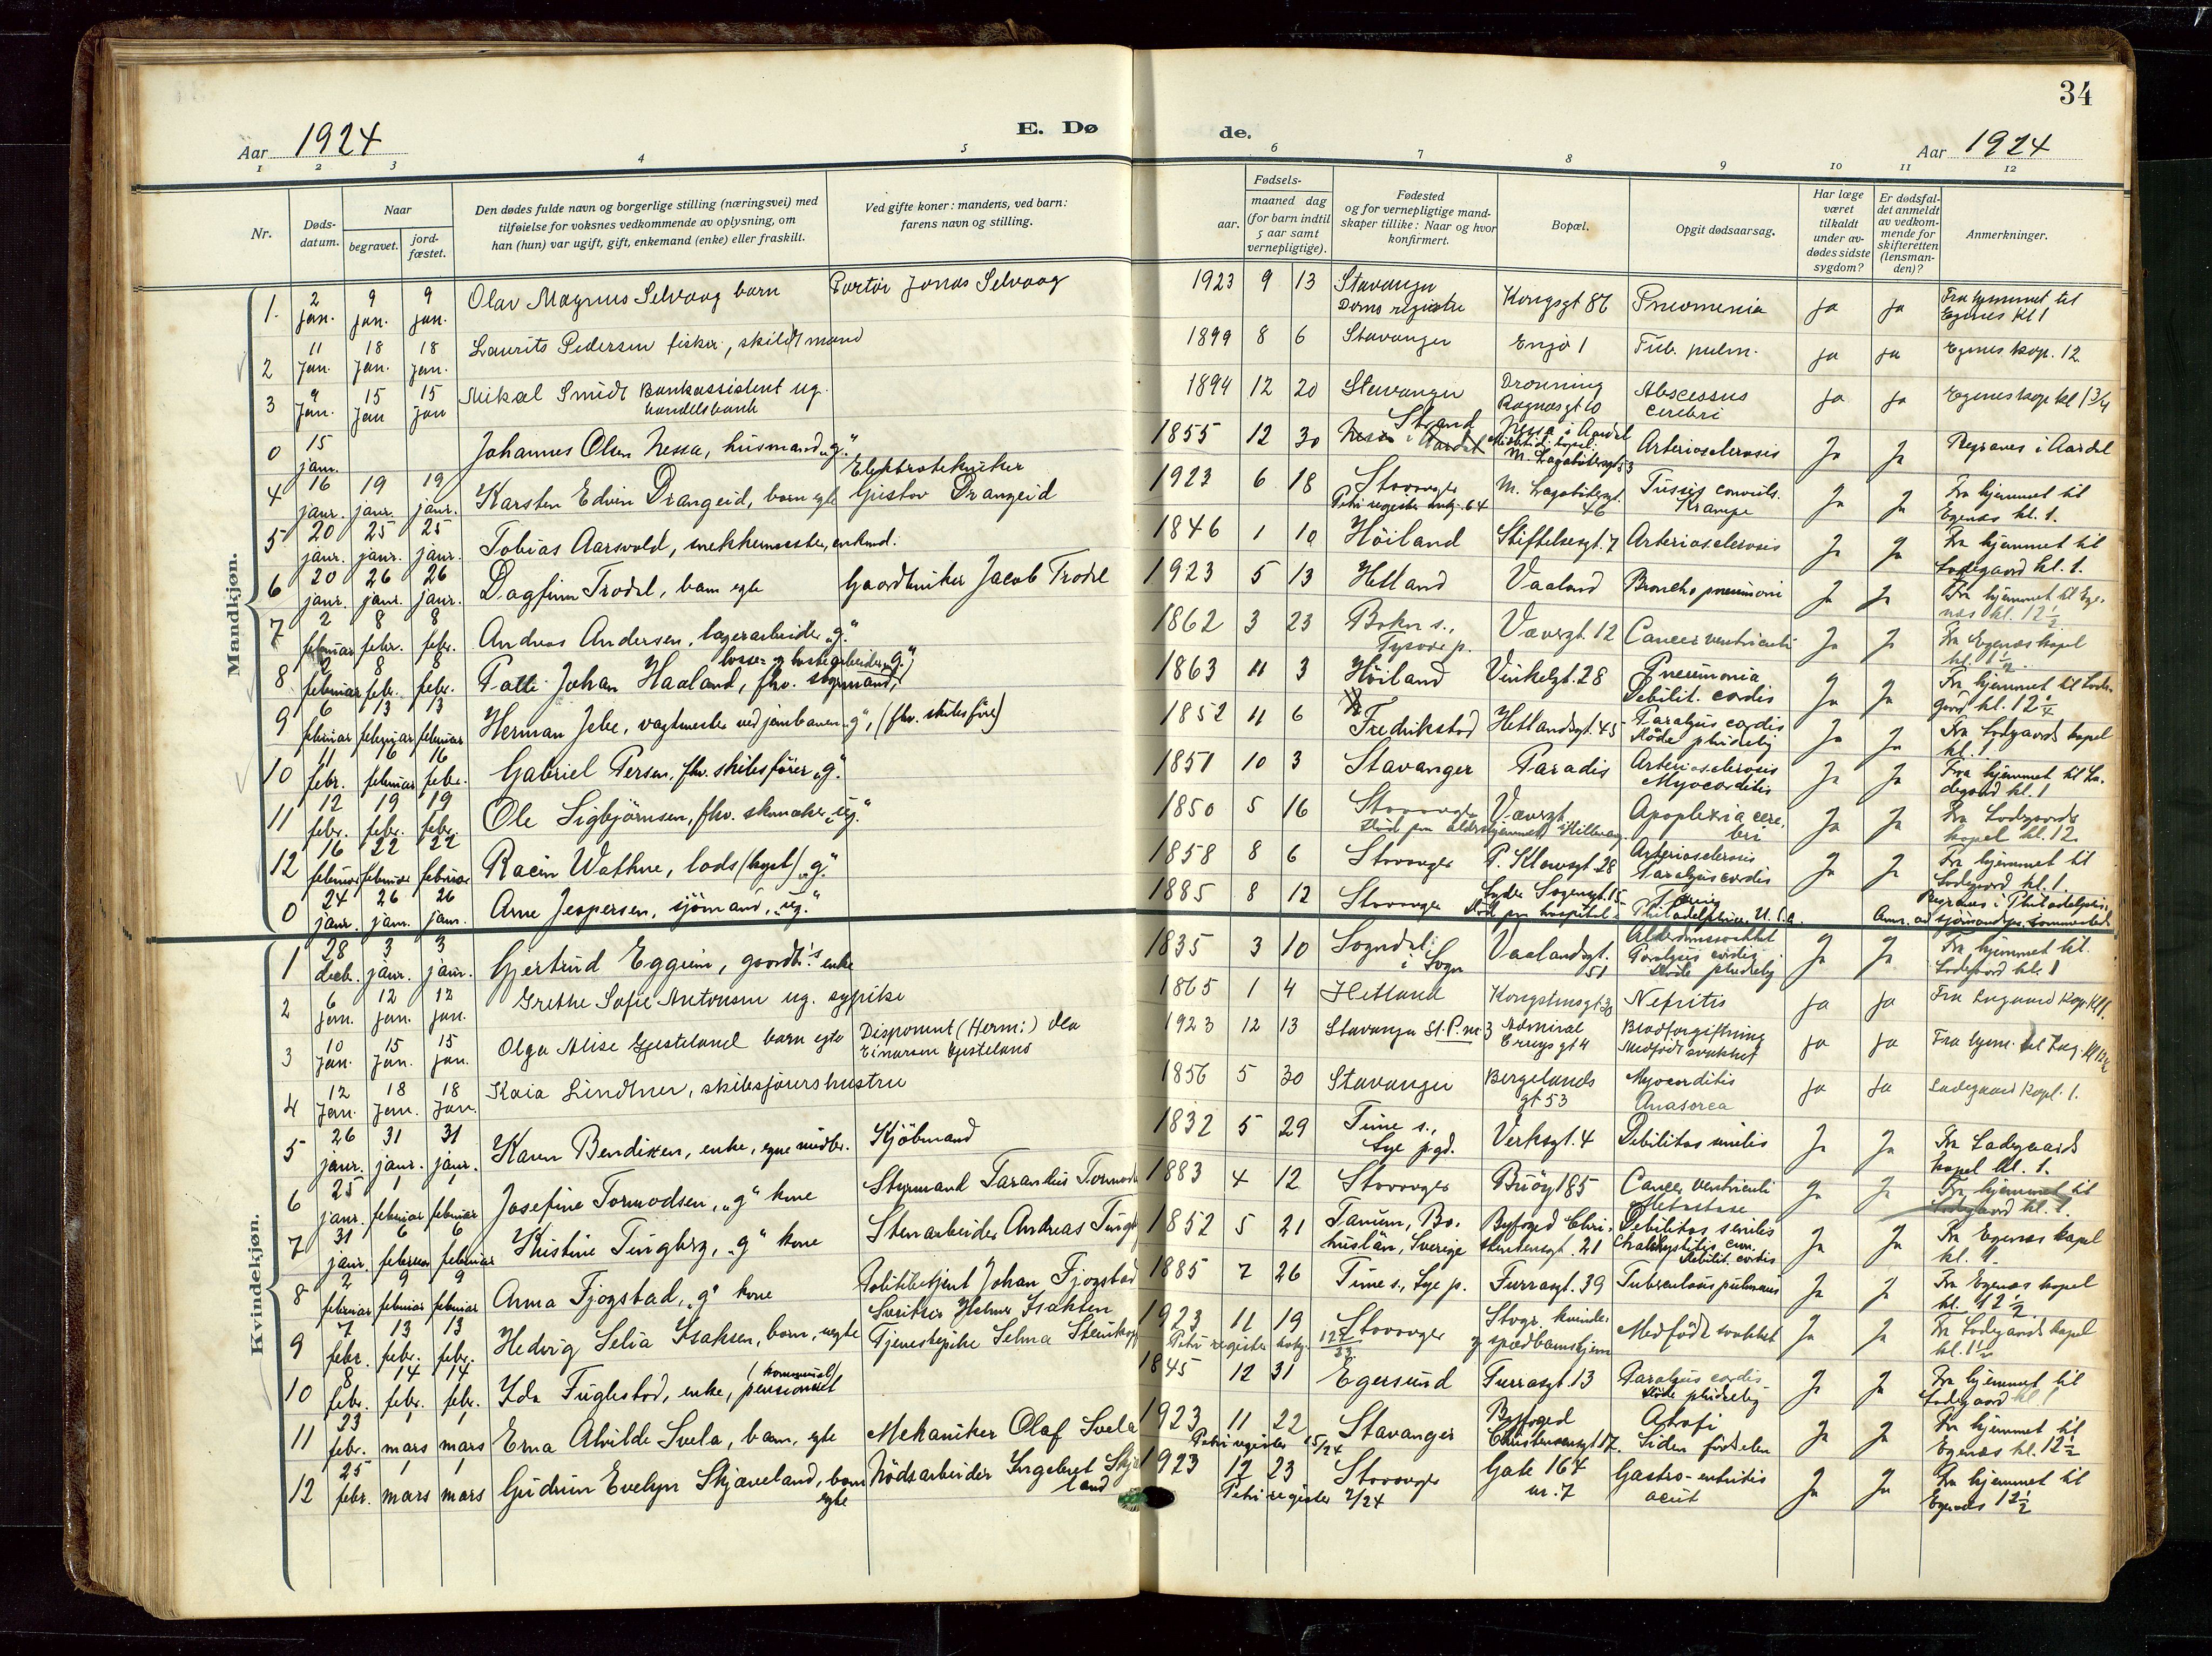 34
Aar 1924
E. Dø
de.
Aar 1924
1 2 3 4 5 6 7 8 9 10 11 12
Nr.
Døds-
datum.
Naar
begravet.
jord-
fæstet.
Den dødes fulde navn og borgerlige stilling (næringsvei) med
tilføielse for voksnes vedkommende av oplysning, om
han (hun) var ugift, gift, enkemand (enke) eller fraskilt.
Ved gifte koner: mandens, ved barn:
farens navn og stilling.
Fødsels-
aar.
maaned dag
(for barn indtil
5 aar samt
vernepligtige).
Fødested
og for vernepligtige mand-
skaper tillike: Naar og hvor
konfirmert.
Bopæl.
Opgit dødsaarsag.
Har læge
været
tilkaldt
under av-
dødes sidste
sygdom?
Er dødsfal-
det anmeldt
av vedkom-
mende for
skifteretten
(lensman-
den)?
Anmerkninger.
Mandkjøn.
1. 2 jan. 9 jan. 9 jan. Olav Magnus Selvaag barn Portør Jonas Selvaag 1923 9 13 Stavanger Doms registre Kongsgt 86 Pneomenia ja ja Fra hjemmet til Egenes Kl 1
2 11 Jan. 18 Jan. 18 Jan. Laurits Pedersen fisker, skildt mand 1899 8 6 Stavanger Engø 1 Tub. pulm. ja ja Egenes kap. 12
3 9 Jan. 15 Jan 15 Jan Mikal Smidt Bankassistent ug. handelsbank 1894 12 20 Stavanger Dronning Ragnasgt 10 Abscessus cerebri ja ja Egenes kap kl 1 3/4
0 15 jan. Johannes Olsen Nessa, husmand „g." 1855 12 30 Strand Nessa i Aardal M. Lagabötersgt 53 Arteriosclerosis Ja Ja Begraves i Aardal
4 16 janr. 19 janr. 19 janr. Karsten Edvin Drangeid, barn egte Elektrotekniker Gustav Drangeid 1923 6 18 Stavanger Petri register 64 M. Lagabötersgt. 46 Tussis convuls. Krampe Ja Ja Fra hjemmet til Egenæs kl. 1.
5 20 janr. 25 janr. 25 janr. Tobias Aarsvold, snekkermester, enkmd. 1846 1 10 Höiland Stiftelsesgt. 7 Arteriosclerosis Ja Ja Fra hjemmet til Lodegaard kl. 1.
6 20 janr. 26 janr. 26 janr. Dagfinn Trodal, barn egte Gaardbruker Jacob Trodal 1923 5 13 Hetland Vaaland Broncho pneumoni Ja Ja Fra hjemmet til Egenæs kl. 12 1/2
7 2 februar 8 febr. 8 febr. Andreas Andersen, lagerarbeider „g." 1862 3 23 Bokn s., Tysvær p. Vævergt. 12 Cancer ventriculi Ja Ja Fra Egenæs kapel kl. 1 1/2
8 2 februar 8 febr. 8 febr. Palle Johan Haaland, fhv. styrmand, losse- og lastearbeider „g." 1863 11 3 Höiland Vinkelgt. 28 Pneumonia Debilit. cordis Ja Ja Fra hjemmet til Lodegaard kl. 12 1/4
9 6 februar 13 februar 13 februar Herman Jebe, vagtmester ved jernbanen „g", (fhv. skibsfører) 1852 11 6 Fredrikstad Hetlandsgt. 45 Paralysis cordis Døde pludselig Ja Ja Fra Lodegaards kapel kl. 1
10 11 febr. 16 februar 16 febr. Gabriel Persen, fhv. skibsfører „g." 1851 10 3 Stavanger Paradis Arteriosclerosis Myocarditis Ja Ja Fra hjemmet til Ladegaard kl. 1
11 12 febr. 19 febr. 19 febr. Ole Sigbjørnsen, fhv. skomaker „ug." 1850 5 16 Stavanger Vævergt. Apoplexia cerebri Ja Ja Fra Lodegaards kapel kl. 12
12 16 februar 22 februar 22 februar Racin Wathne, lods „g." 1858 8 6 Stavanger P. Klowsgt 28 Arteriosclerosis Paralysis cordis Ja Ja Fra hjemmet til Lodegaard kl. 1.
0 24 janr. 26 janr. 26 janr. Arne Jespersen, sjömand, „ug." 1885 8 12 Stavanger Lyder Sagensgt. 15 Død paa hospital i Philadelphia U.S.A. Begraves i Philadelphia.
Kvindekjøn.
1 28 decb. 3 janr. 3 janr. Gjertrud Eggum, gaardbr's enke 1835 3 10 Sogndal i Sogn Vaalandsgt. 51 Alderdomssvakhet Paralysis cordis Døde pludselig Ja Ja Fra hjemmet til Lodegaard kl. 1
2 6 jan. 12 jan. 12 jan. Grethe Sofie Antonsen ug. sypike 1865 1 4 Hetland Kongstensgt 30 Nefritis ja ja Fra Lagaard Kap. Kl 1.
3 10 jan. 15 jan. 15 jan. Olga Alise Gjesteland barn egte Disponent (Herm:) Ola Einarsen Gjesteland 1923 12 13 Stavanger St. P. nr 3 Admiral Cruys gt 4 Blodforgiftning Medfødt svakhet ja ja Fra hjem. til Lag. kl 12 1/2
4 12 Jan. 18 Jan. 18 Jan. Kaia Lindtner, skibsførers hustru 1856 5 30 Stavanger Bergelands gt 53 Myocarditis Anasarca ja ja Ladegaard kapl. 1.
5 26 janr. 31 janr. 31 janr. Karen Bendixen, enke, egne midler. Kjöbmand 1832 5 29 Time s., Lye pgd. Verksgt. 4 Debilitas senilis Ja Ja Fra Ladegaards kapel kl. 1.
6 25 janr. 1 februar 1 februar Josefine Tormodsen, „g" kone Styrmand Tarandus Tormod 1883 4 12 Stavanger Buöy 185 Cancer ventriculi Metastase Ja Ja Fra hjemmet til Lodegaard kl. 1.
7 31 janr. 6 februar 6 februar Kristine Tingberg, „g" kone Stenarbeider Andreas Tingb 1852 5 21 Tanum, Bohuslän, Sverige Byfoged Christensensgt. 21 Debilitas senilis Debilit. cordis Ja Ja Fra Egenæs kapel kl. 1.
8 2 februar 9 februar 9 februar Anna Fjogstad, „g" kone Politibetjent Johan Fjogstad 1885 7 26 Time s., Lye p. Furrasgt. 39 Tuberculosis pulmonis Ja Ja Fra Egenæs kapel kl. 12 1/2
9 7 febr. 13 febr. 13 febr. Hedvig Selia Isaksen, barn, uegte Helmer Isaksen Tjenestepike Selma Steinkop 1923 11 19 Petri register 127/23 Stavanger Stvgr. kvinde- og spædbarnshjem Medfødt svakhet Ja Ja Fra Lodegaards kapel kl. 1 1/2
10 8 febr. 14 febr. 14 febr. Ida Fuglestad, enke, (kommunal) pensionist 1845 12 31 Egersund Furrasgt. 13 Paralysis cordis Døde pludselig Ja Ja Fra hjemmet til Lodegaard kl. 1
11 23 febr. 1 mars 1 mars Erna Alvilde Svela, barn, egte Mekaniker Olaf Svela 1923 11 22 Petri register 5/24 Stavanger Byfoged Christensensgt 17. Atrofi Siden fødselen Ja Ja Fra hjemmet til Egenæs kl. 12 1/2
12 25 febr. 1 mars 1 mars Gudrun Evelyn Skjæveland, barn egte Nödsarbeider Ingebret Skjæ land 1923 12 23 Petri register 2/24 Stavanger Gate 164 nr. 7 Gastro-entritis acut Ja Ja Fra hjemmet til Egenæs 12 1/2